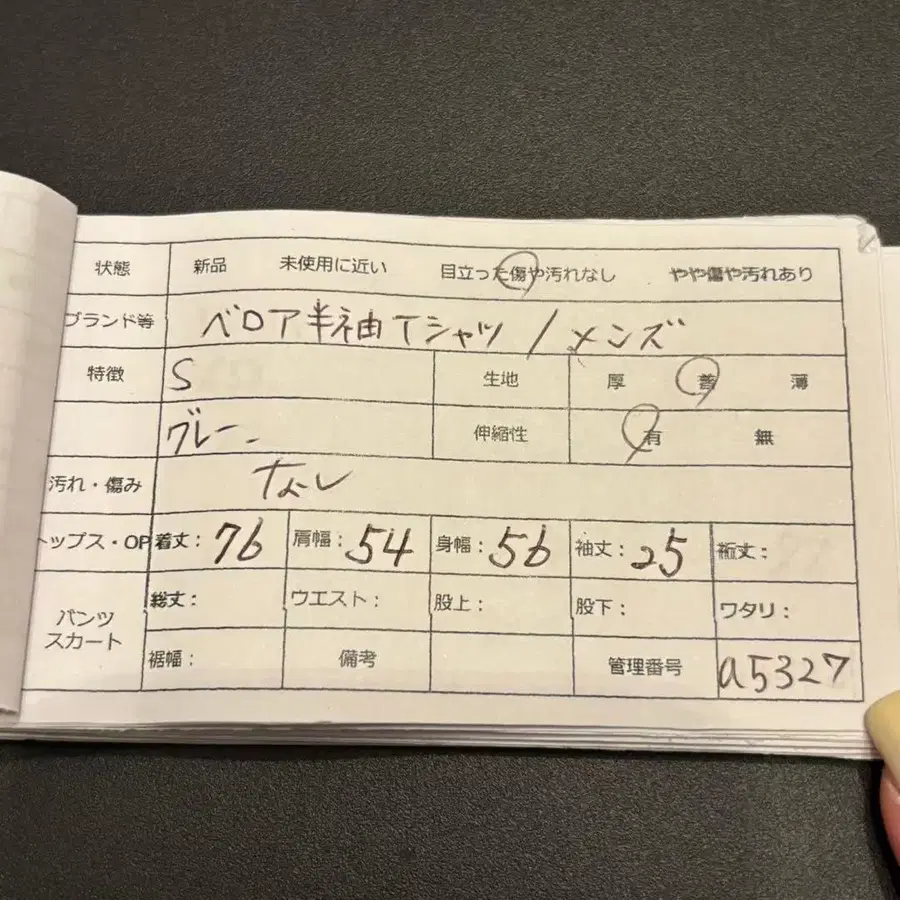 状態 新品 未使用に近い 目立った傷や汚れなし やや傷や汚れあり
ブランド等 ベロア半袖Tシャツ/メンズ
特徴 S 生地 厚 普 薄
グレー 伸縮性 有 無
汚れ・傷み なし
トップス・OP 着丈: 76 肩幅: 54 身幅: 56 袖丈: 25 裄丈:
パンツ スカート 総丈: ウエスト: 股上: 股下: ワタリ:
裾幅: 備考 管理番号 a5327